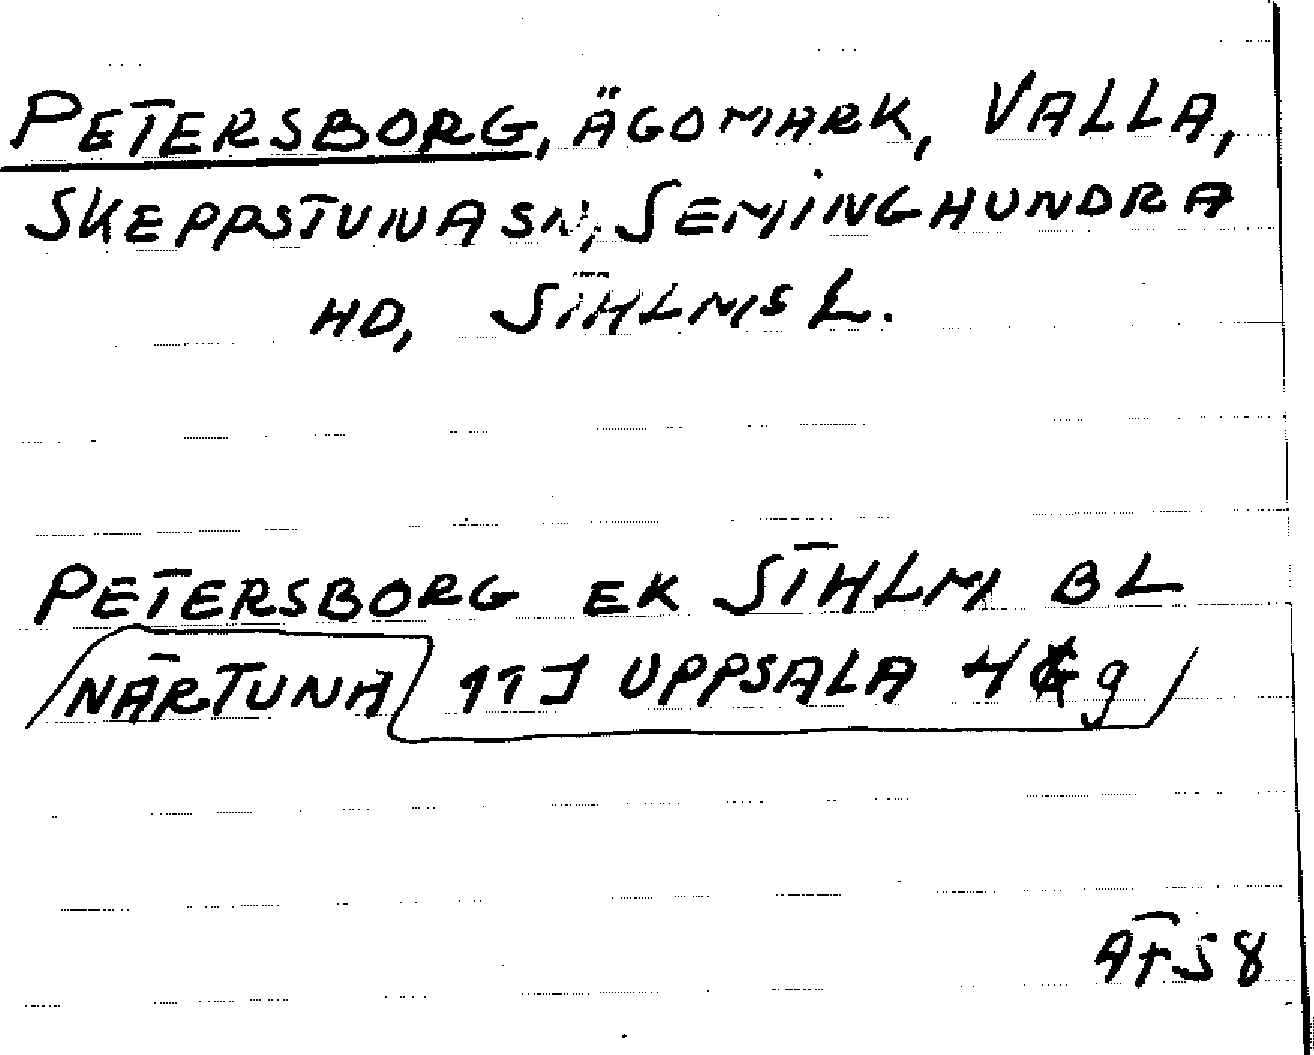 PETERSBORG, ÄGOMARK, VALLA,
SKEPPSTUNA SN, SEMINGHUNDRA
HD, STHLMS L.
PETERSBORG EK STHLM BL
NÄRTUNA 11J UPPSALA 4 g
ATS8